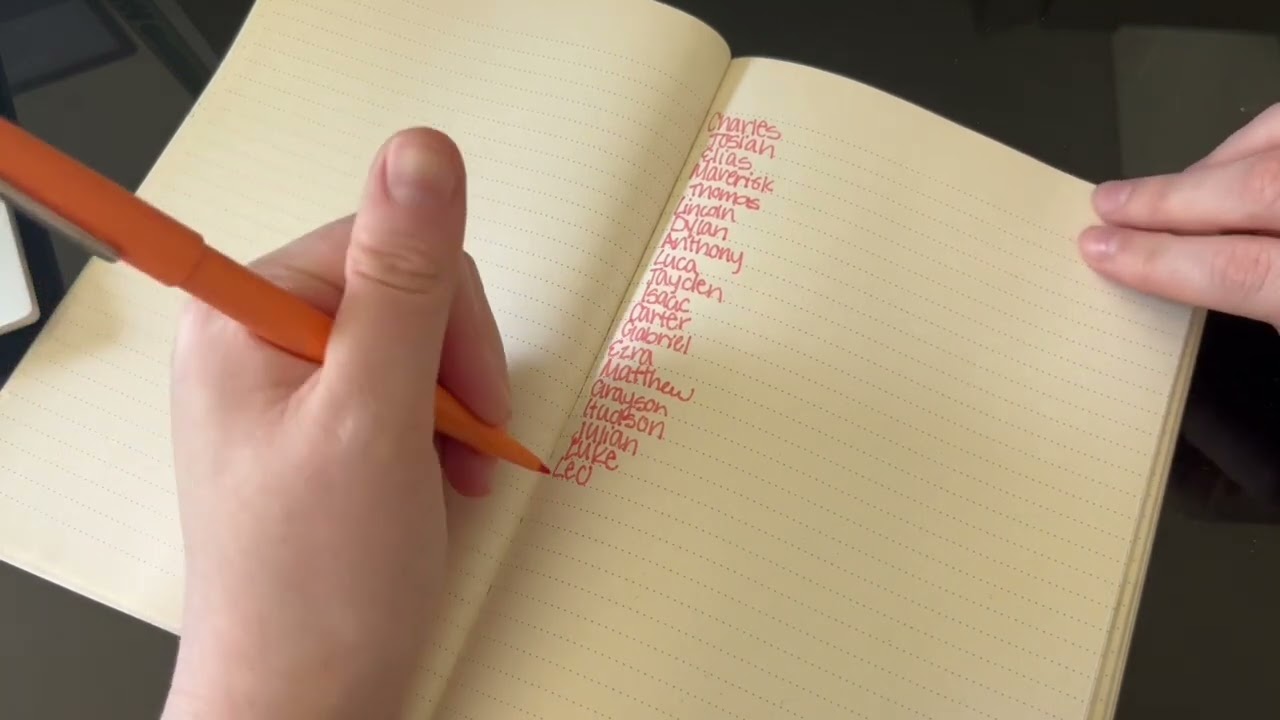 Charles
Josiah
Elias
Maverisk
Thomas
Lincoln
Dylan
Anthony
Luca
Jayden
Isaac
Carter
Gabriel
Ezra
Matthew
Grayson
Hudson
Julian
Luke
Leo